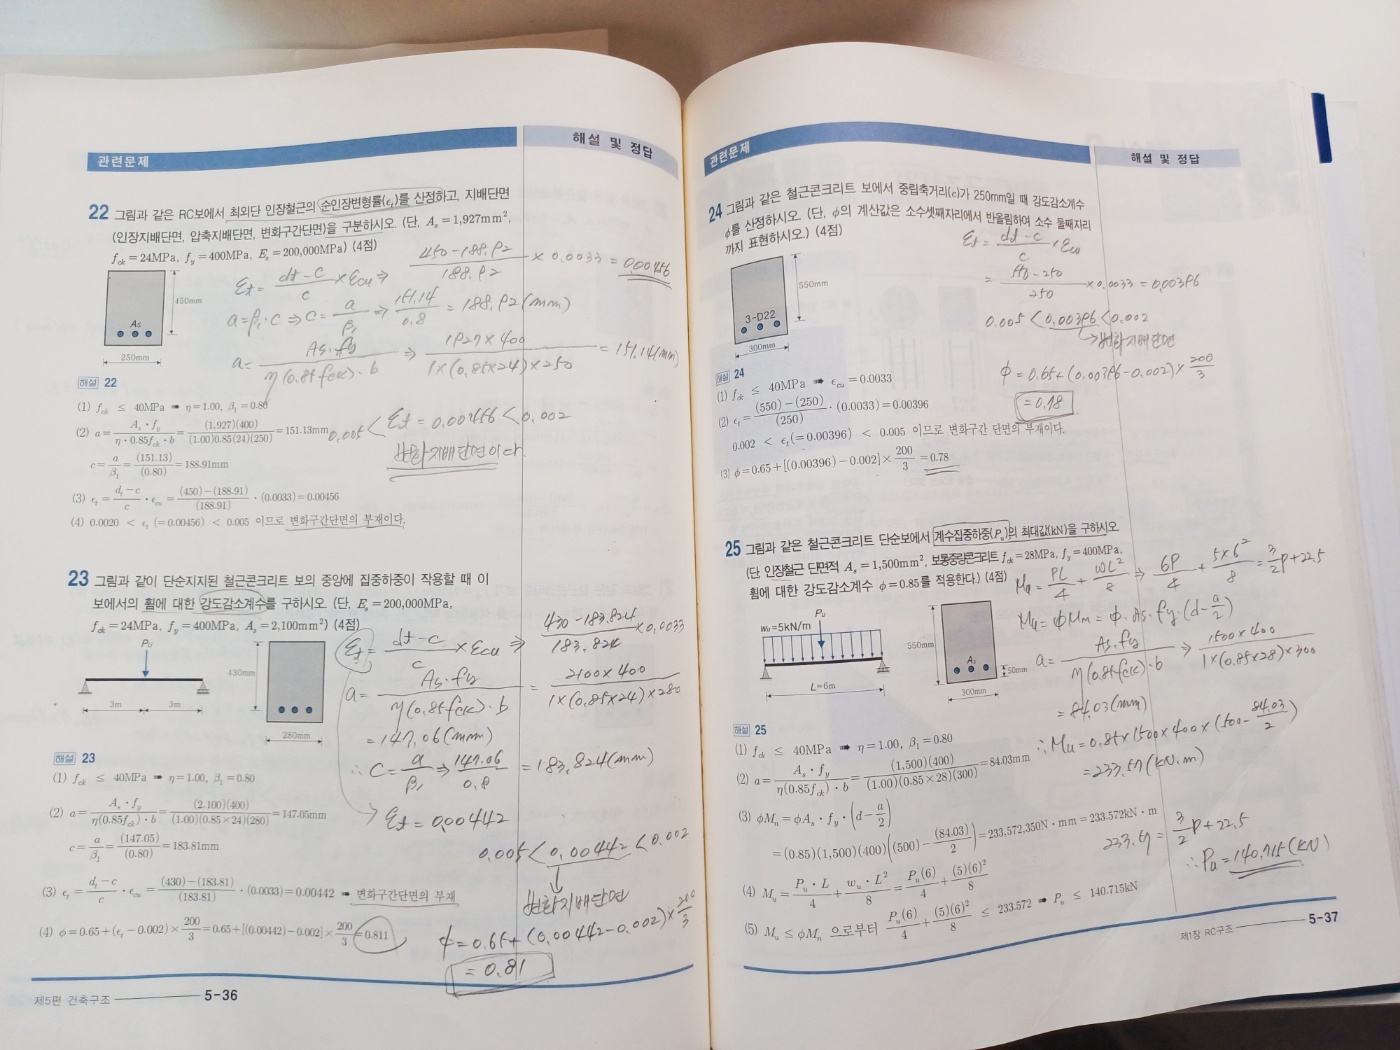 관련문제
해설 및 정답
22 그림과 같은 RC보에서 최외단 인장철근의 순인장변형률(εt)를 산정하고, 지배단면
(인장지배단면, 압축지배단면, 변화구간단면)을 구분하시오. (단, As=1,927mm²,
fck=24MPa, fy=400MPa, Es=200,000MPa) (4점)
450mm
As
250mm
εt = (dt-c)/c × εcu ⇒ (450-188.92)/188.92 × 0.0033 = 0.00456
a=β1·c ⇒ c = a/β1 ⇒ 151.14/0.8 = 188.92(mm)
a = As·fy / η(0.85fck)·b ⇒ 1927×400 / 1×(0.85×24)×250 = 151.14(mm)
해설 22
(1) fck ≤ 40MPa ➡ η=1.00, β1=0.80
(2) a = As·fy / η·0.85fck·b = (1,927)(400) / (1.00)0.85(24)(250) = 151.13mm
c = a/β1 = (151.13)/(0.80) = 188.91mm
(3) εt = (dt-c)/c · εcu = ((450)-(188.91))/(188.91) · (0.0033) = 0.00456
(4) 0.0020 < εt (=0.00456) < 0.005 이므로 변화구간단면의 부재이다.
0.005 < εt = 0.00456 < 0.002
변화지배단면이다.
23 그림과 같이 단순지지된 철근콘크리트 보의 중앙에 집중하중이 작용할 때 이
보에서의 휨에 대한 강도감소계수를 구하시오. (단, Es=200,000MPa,
fck=24MPa, fy=400MPa, As=2,100mm²) (4점)
Pu
3m 3m
430mm
280mm
εt = (dt-c)/c × εcu ⇒ (430-183.824)/183.824 × 0.0033
a = As·fy / η(0.85fck)·b = 2100×400 / 1×(0.85×24)×280
= 147.06(mm)
∴ c = a/β1 ⇒ 147.06/0.8 = 183.824(mm)
→ εt = 0.00442
0.005 < 0.00442 < 0.002
변화지배단면
φ = 0.65+(0.00442-0.002)×200/3
= 0.81
해설 23
(1) fck ≤ 40MPa ➡ η=1.00, β1=0.80
(2) a = As·fy / η(0.85fck)·b = (2,100)(400) / (1.00)(0.85×24)(280) = 147.05mm
c = a/β1 = (147.05)/(0.80) = 183.81mm
(3) εt = (dt-c)/c · εcu = ((430)-(183.81))/(183.81) · (0.0033) = 0.00442 ➡ 변화구간단면의 부재
(4) φ=0.65+(εt-0.002)×200/3=0.65+[(0.00442)-0.002]×200/3=0.811
제5편 건축구조 5-36
관련문제
해설 및 정답
24 그림과 같은 철근콘크리트 보에서 중립축거리(c)가 250mm일 때 강도감소계수
φ를 산정하시오. (단, φ의 계산값은 소수셋째자리에서 반올림하여 소수 둘째자리
까지 표현하시오.) (4점)
550mm
3-D22
300mm
εt = (dt-c)/c × εcu
= (550-250)/250 × 0.0033 = 0.00396
0.005 < 0.00396 < 0.002
→ 변화지배단면
φ = 0.65+(0.00396-0.002)×200/3
= 0.78
해설 24
(1) fck ≤ 40MPa ➡ εcu=0.0033
(2) εt = ((550)-(250))/(250) · (0.0033) = 0.00396
0.002 < εt(=0.00396) < 0.005 이므로 변화구간 단면의 부재이다.
(3) φ=0.65+[(0.00396)-0.002]×200/3=0.78
25 그림과 같은 철근콘크리트 단순보에서 계수집중하중(Pu)의 최대값(kN)을 구하시오.
(단, 인장철근 단면적 As=1,500mm², 보통중량콘크리트 fck=28MPa, fy=400MPa,
휨에 대한 강도감소계수 φ=0.85를 적용한다.) (4점)
wu=5kN/m
Pu
L=6m
550mm
As
50mm
300mm
Mu = PL/4 + wL²/8 ⇒ 6P/4 + 5×6²/8 = 3/2P+22.5
Mu = φMn = φ·As·fy·(d-a/2)
a = As·fy / η(0.85fck)·b ⇒ 1500×400 / 1×(0.85×28)×300
= 84.03(mm)
∴ Mu = 0.85×1500×400×(500-84.03/2)
= 233.57(kN·m)
233.57 = 3/2P+22.5
∴ Pu = 140.715(kN)
해설 25
(1) fck ≤ 40MPa ➡ η=1.00, β1=0.80
(2) a = As·fy / η(0.85fck)·b = (1,500)(400) / (1.00)(0.85×28)(300) = 84.03mm
(3) φMn=φAs·fy·(d-a/2)
=(0.85)(1,500)(400)((500)-(84.03)/2)=233,572,350N·mm=233.572kN·m
(4) Mu = Pu·L/4 + wu·L²/8 = Pu(6)/4 + (5)(6)²/8
(5) Mu ≤ φMn 으로부터 Pu(6)/4 + (5)(6)²/8 ≤ 233.572 ➡ Pu ≤ 140.715kN
제1장 RC구조 5-37